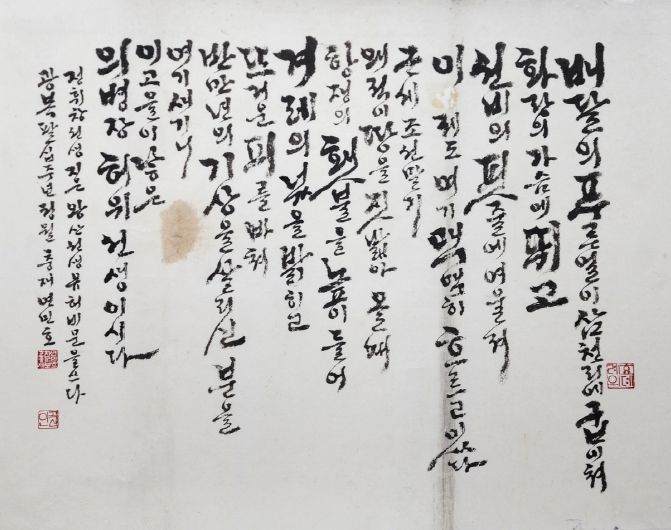 배달의 푸른 얼이 삼천리에 굽이쳐
화랑의 가슴에 뛰고
선비의 핏줄에 여울쳐
이제도 여기 맥맥히 흐르고 있다
근세 조선 말기
왜적이 땅을 짓밟아 올 때
항쟁의 횃불을 높이 들어
겨레의 넋을 밝히고
뜨거운 피를 바쳐
반만년의 기상을 살리신 분을
여기 새기니
이 고을이 낳은
의병장 허위 선생이시다
정휘창 선생 짓은 왕산 선생 유허비문을 쓰다
광복 팔십주년 정월